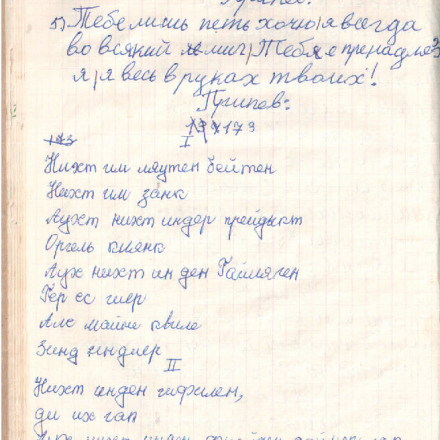 5) Тебе лишь петь хочу/я всегда
во всякий миг/Тебе пренадле
я/я весь в руках твоих!
Припев:
173
I
Нихт им лаутен бейтен
Нихт им занк
Аухт нихт индер прейдикт
Оргель клянк
Аух нихт ин ден
Гер ес гиер
Алс майне квиле
Зинд индиер
II
Нихт инден гифилен,
ди их гап